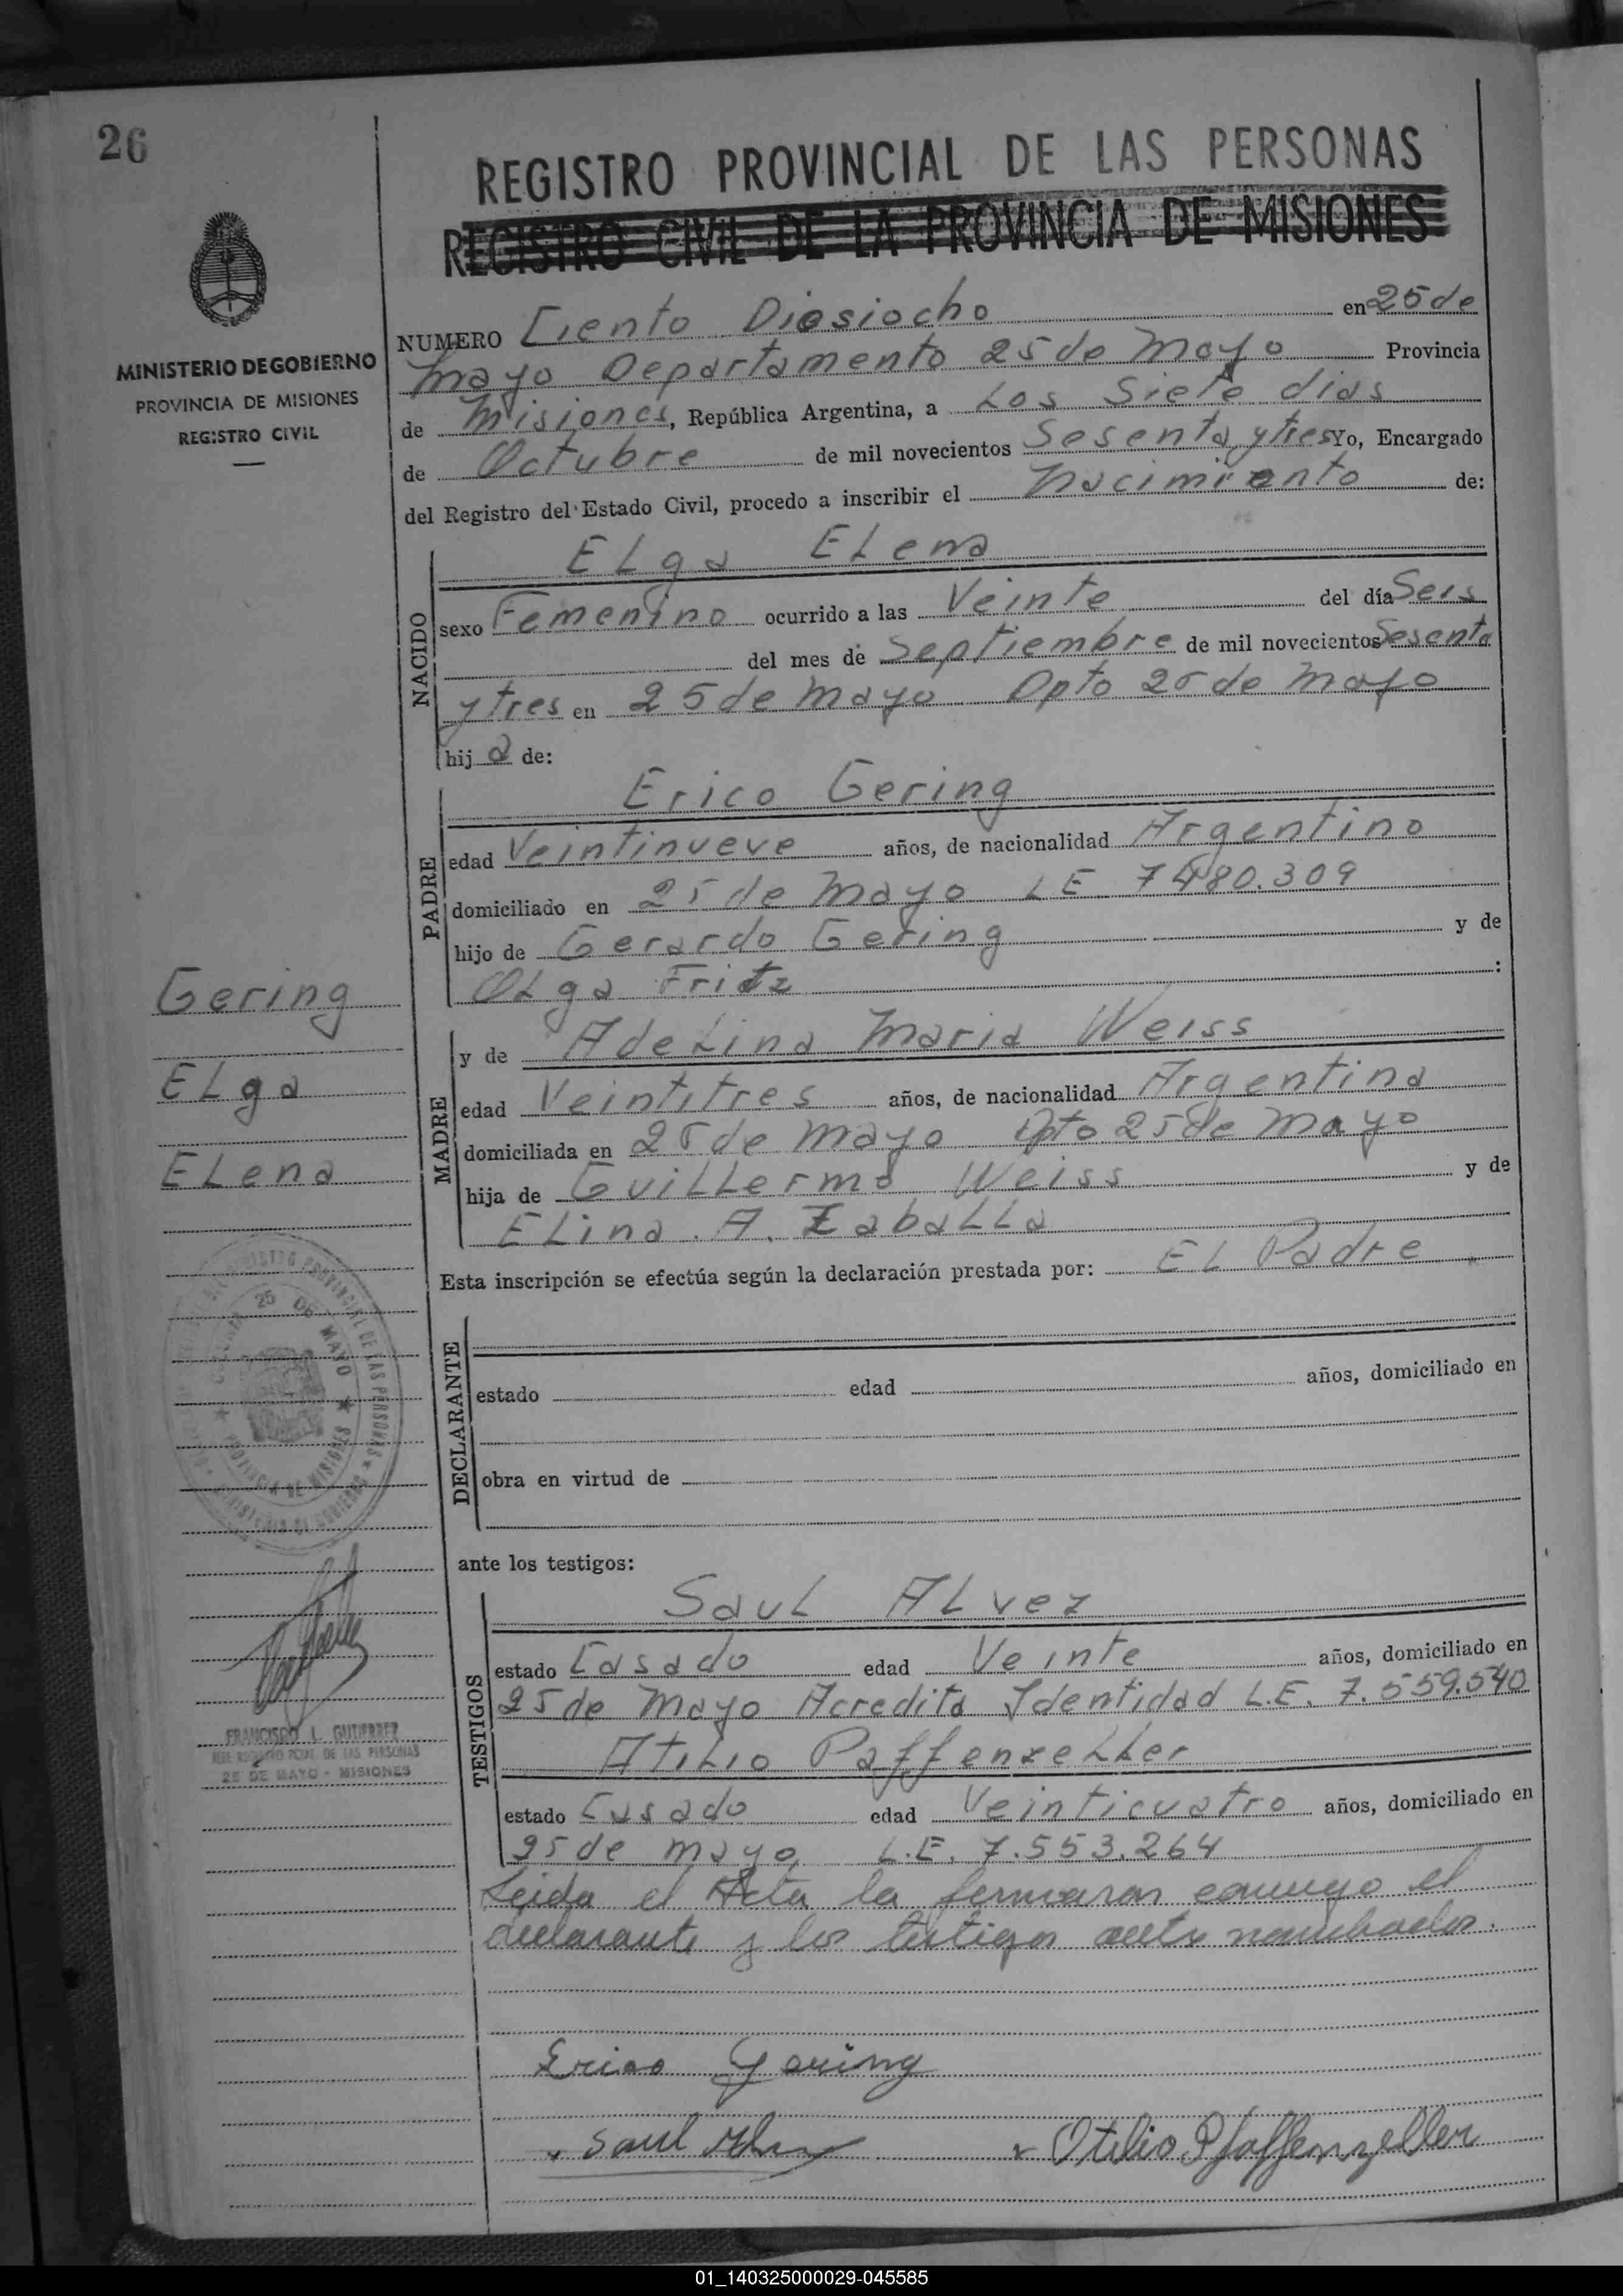 26
REGISTRO PROVINCIAL DE LAS PERSONAS
REGISTRO CIVIL DE LA PROVINCIA DE MISIONES
MINISTERIO DE GOBIERNO
PROVINCIA DE MISIONES
REGISTRO CIVIL
NUMERO Ciento Diesiocho en 25 de
mayo Departamento 25 de mayo Provincia
de Misiones, República Argentina, a Los Siete dias
de Octubre de mil novecientos Sesenta y tres Yo, Encargado
del Registro del Estado Civil, procedo a inscribir el nacimiento de:
NACIDO
ELga ELena
sexo Femenino ocurrido a las Veinte del día Seis
del mes de Septiembre de mil novecientos Sesenta
y tres en 25 de mayo Dpto 25 de mayo
hij a de:
PADRE
Erico Gering
edad Veintinueve años, de nacionalidad Argentino
domiciliado en 25 de mayo LE 7480.309
hijo de Gerardo Gering y de
OLga Fritz :
Gering
ELga
ELena
MADRE
y de AdeLina Maria Weiss
edad Veintitres años, de nacionalidad Argentina
domiciliada en 25 de mayo Dpto 25 de mayo
hija de GuiLLermo Weiss y de
ELina A. ZabaLLa
Esta inscripción se efectúa según la declaración prestada por: EL Padre
DECLARANTE
estado edad años, domiciliado en
obra en virtud de
REGISTRO PROVINCIAL DE LAS PERSONAS
25 DE MAYO
PROVINCIA DE MISIONES
MINISTERIO DE GOBIERNO
ante los testigos:
TESTIGOS
SauL ALvez
estado Casado edad Veinte años, domiciliado en
25 de mayo Acredita Identidad L.E. 7.559.540
AtiLio PaffenzeLLer
estado Casado edad Veinticuatro años, domiciliado en
25 de mayo L.E. 7.553.264
FRANCISCO L. GUTIERREZ
JEFE REGISTRO PCIAL. DE LAS PERSONAS
25 DE MAYO - MISIONES
Leida el Acta la firmaron conmigo el
declarante y los testigos ante nombrados.
Erico Gering
Saul Alvez
Otilio Pfaffenzeller
01_140325000029-045585